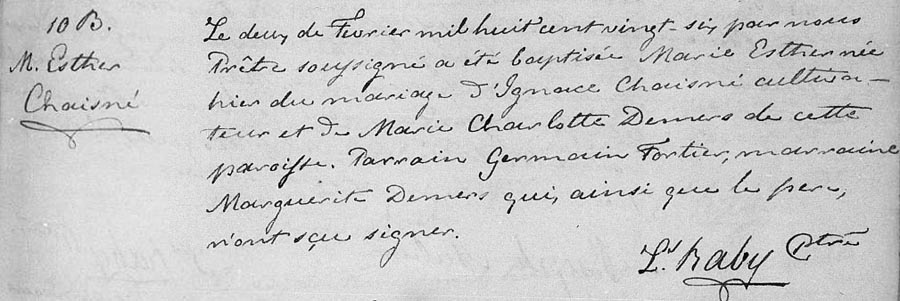 10 B.
M. Esther
Chaisné
Le deux de Fevrier mil huit cent vingt-six, par nous
Prêtre soussigné a été baptisée Marie Esther née
hier du mariage d'Ignace Chaisné cultiva-
teur et de Marie Charlotte Demers de cette
paroisse. Parrain Germain Fortier, marraine
Marguerite Demers qui, ainsi que le pere,
n'ont sçu signer.
Ls. Raby Ptre